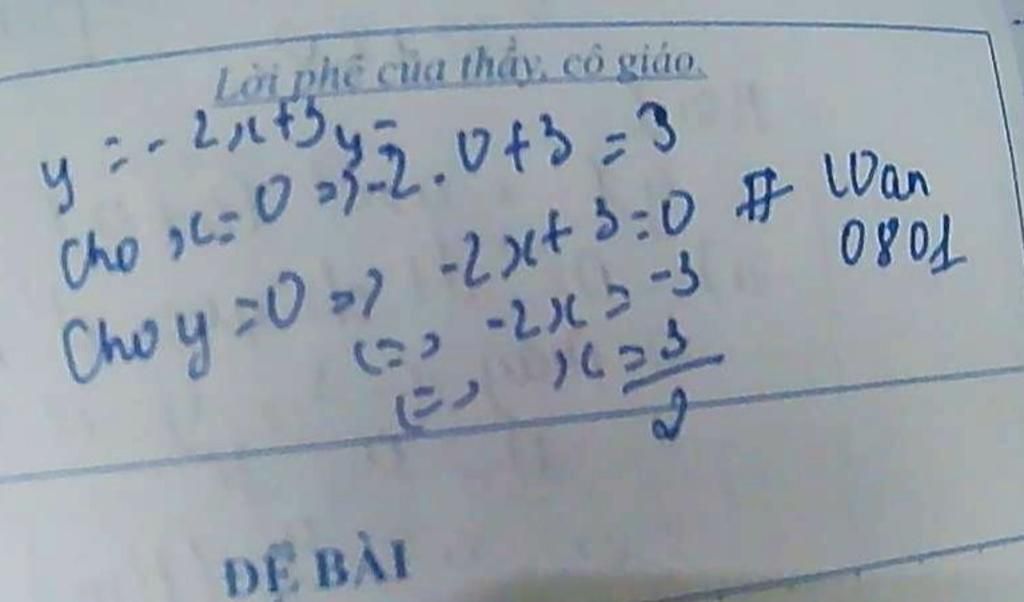 Lời phê của thầy, cô giáo.
y = - 2x + 3
Cho x = 0 => y = -2 . 0 + 3 = 3
Cho y = 0 => -2x + 3 = 0 # Wan 0801
<=> -2x = -3
<=> x = 3/2
ĐỀ BÀI